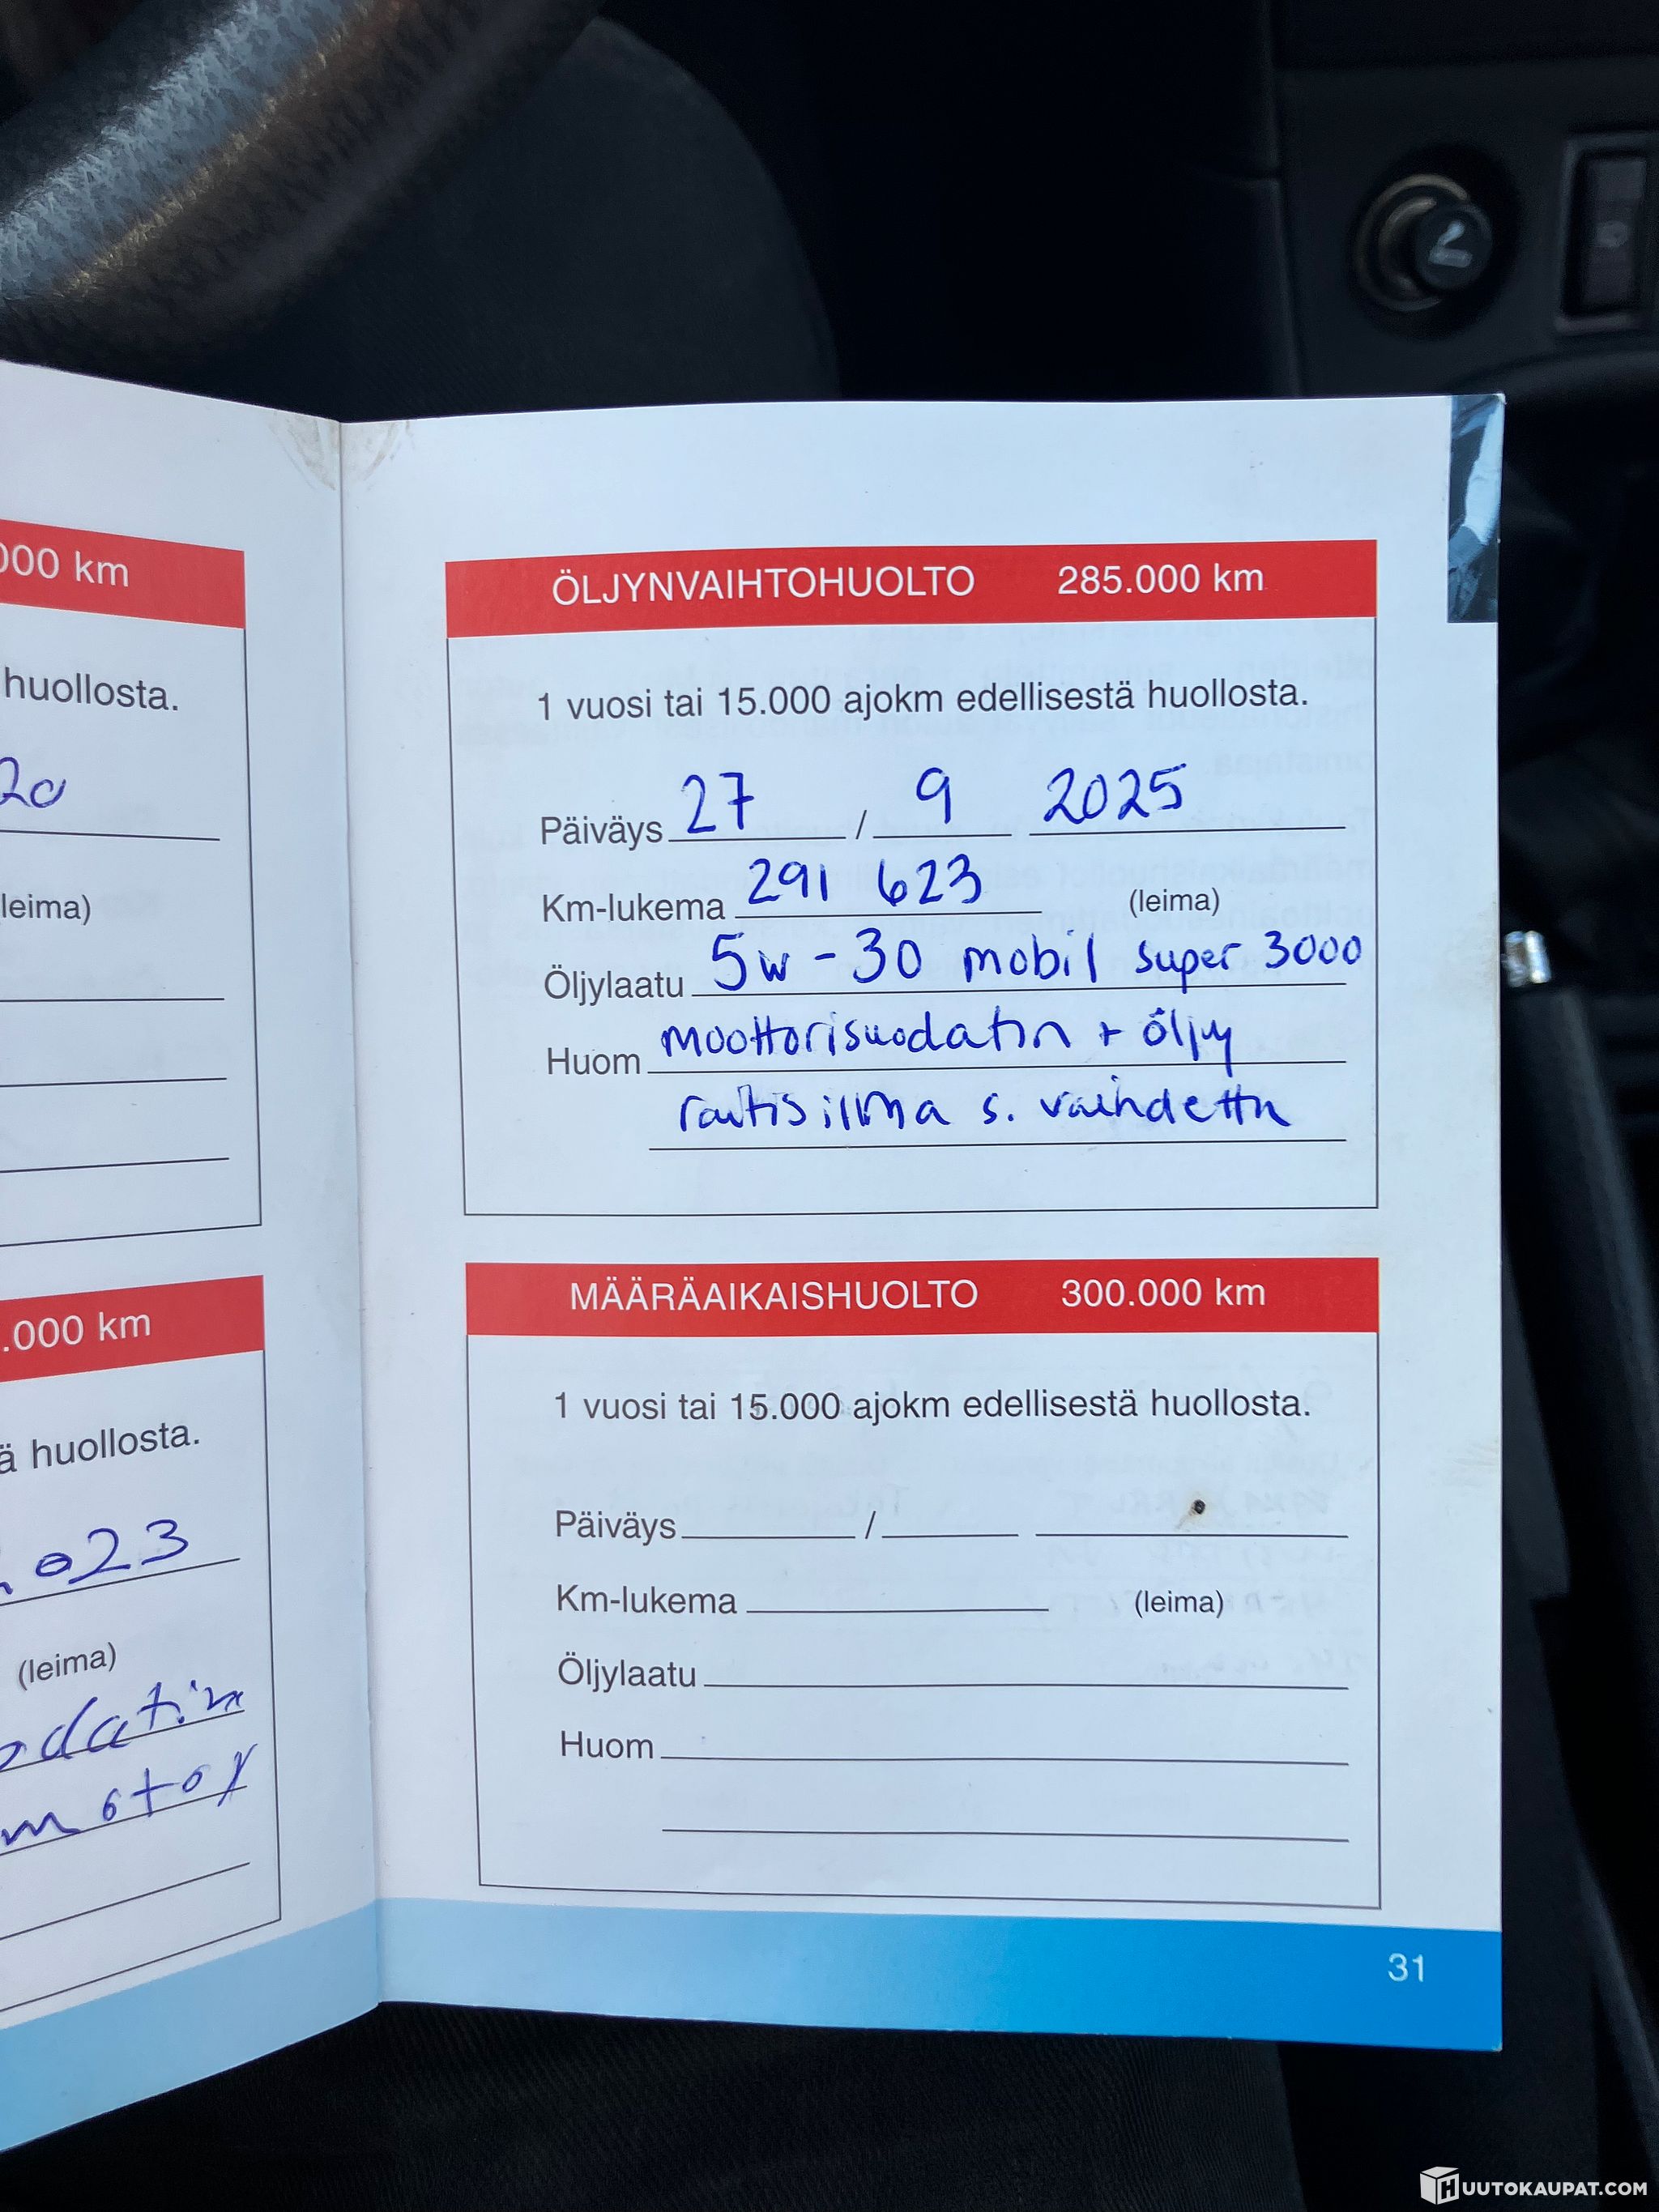 000 km
huollosta.
20
leima)
.000 km
ä huollosta.
023
(leima)
odatin
motoy
ÖLJYNVAIHTOHUOLTO 285.000 km
1 vuosi tai 15.000 ajokm edellisestä huollosta.
Päiväys 27 / 9 2025
Km-lukema 291 623 (leima)
Öljylaatu 5w-30 mobil super 3000
Huom moottorisuodatin + öljy
raitisilma s. vaihdettu
MÄÄRÄAIKAISHUOLTO 300.000 km
1 vuosi tai 15.000 ajokm edellisestä huollosta.
Päiväys /
Km-lukema (leima)
Öljylaatu
Huom
31
HUUTOKAUPAT.COM